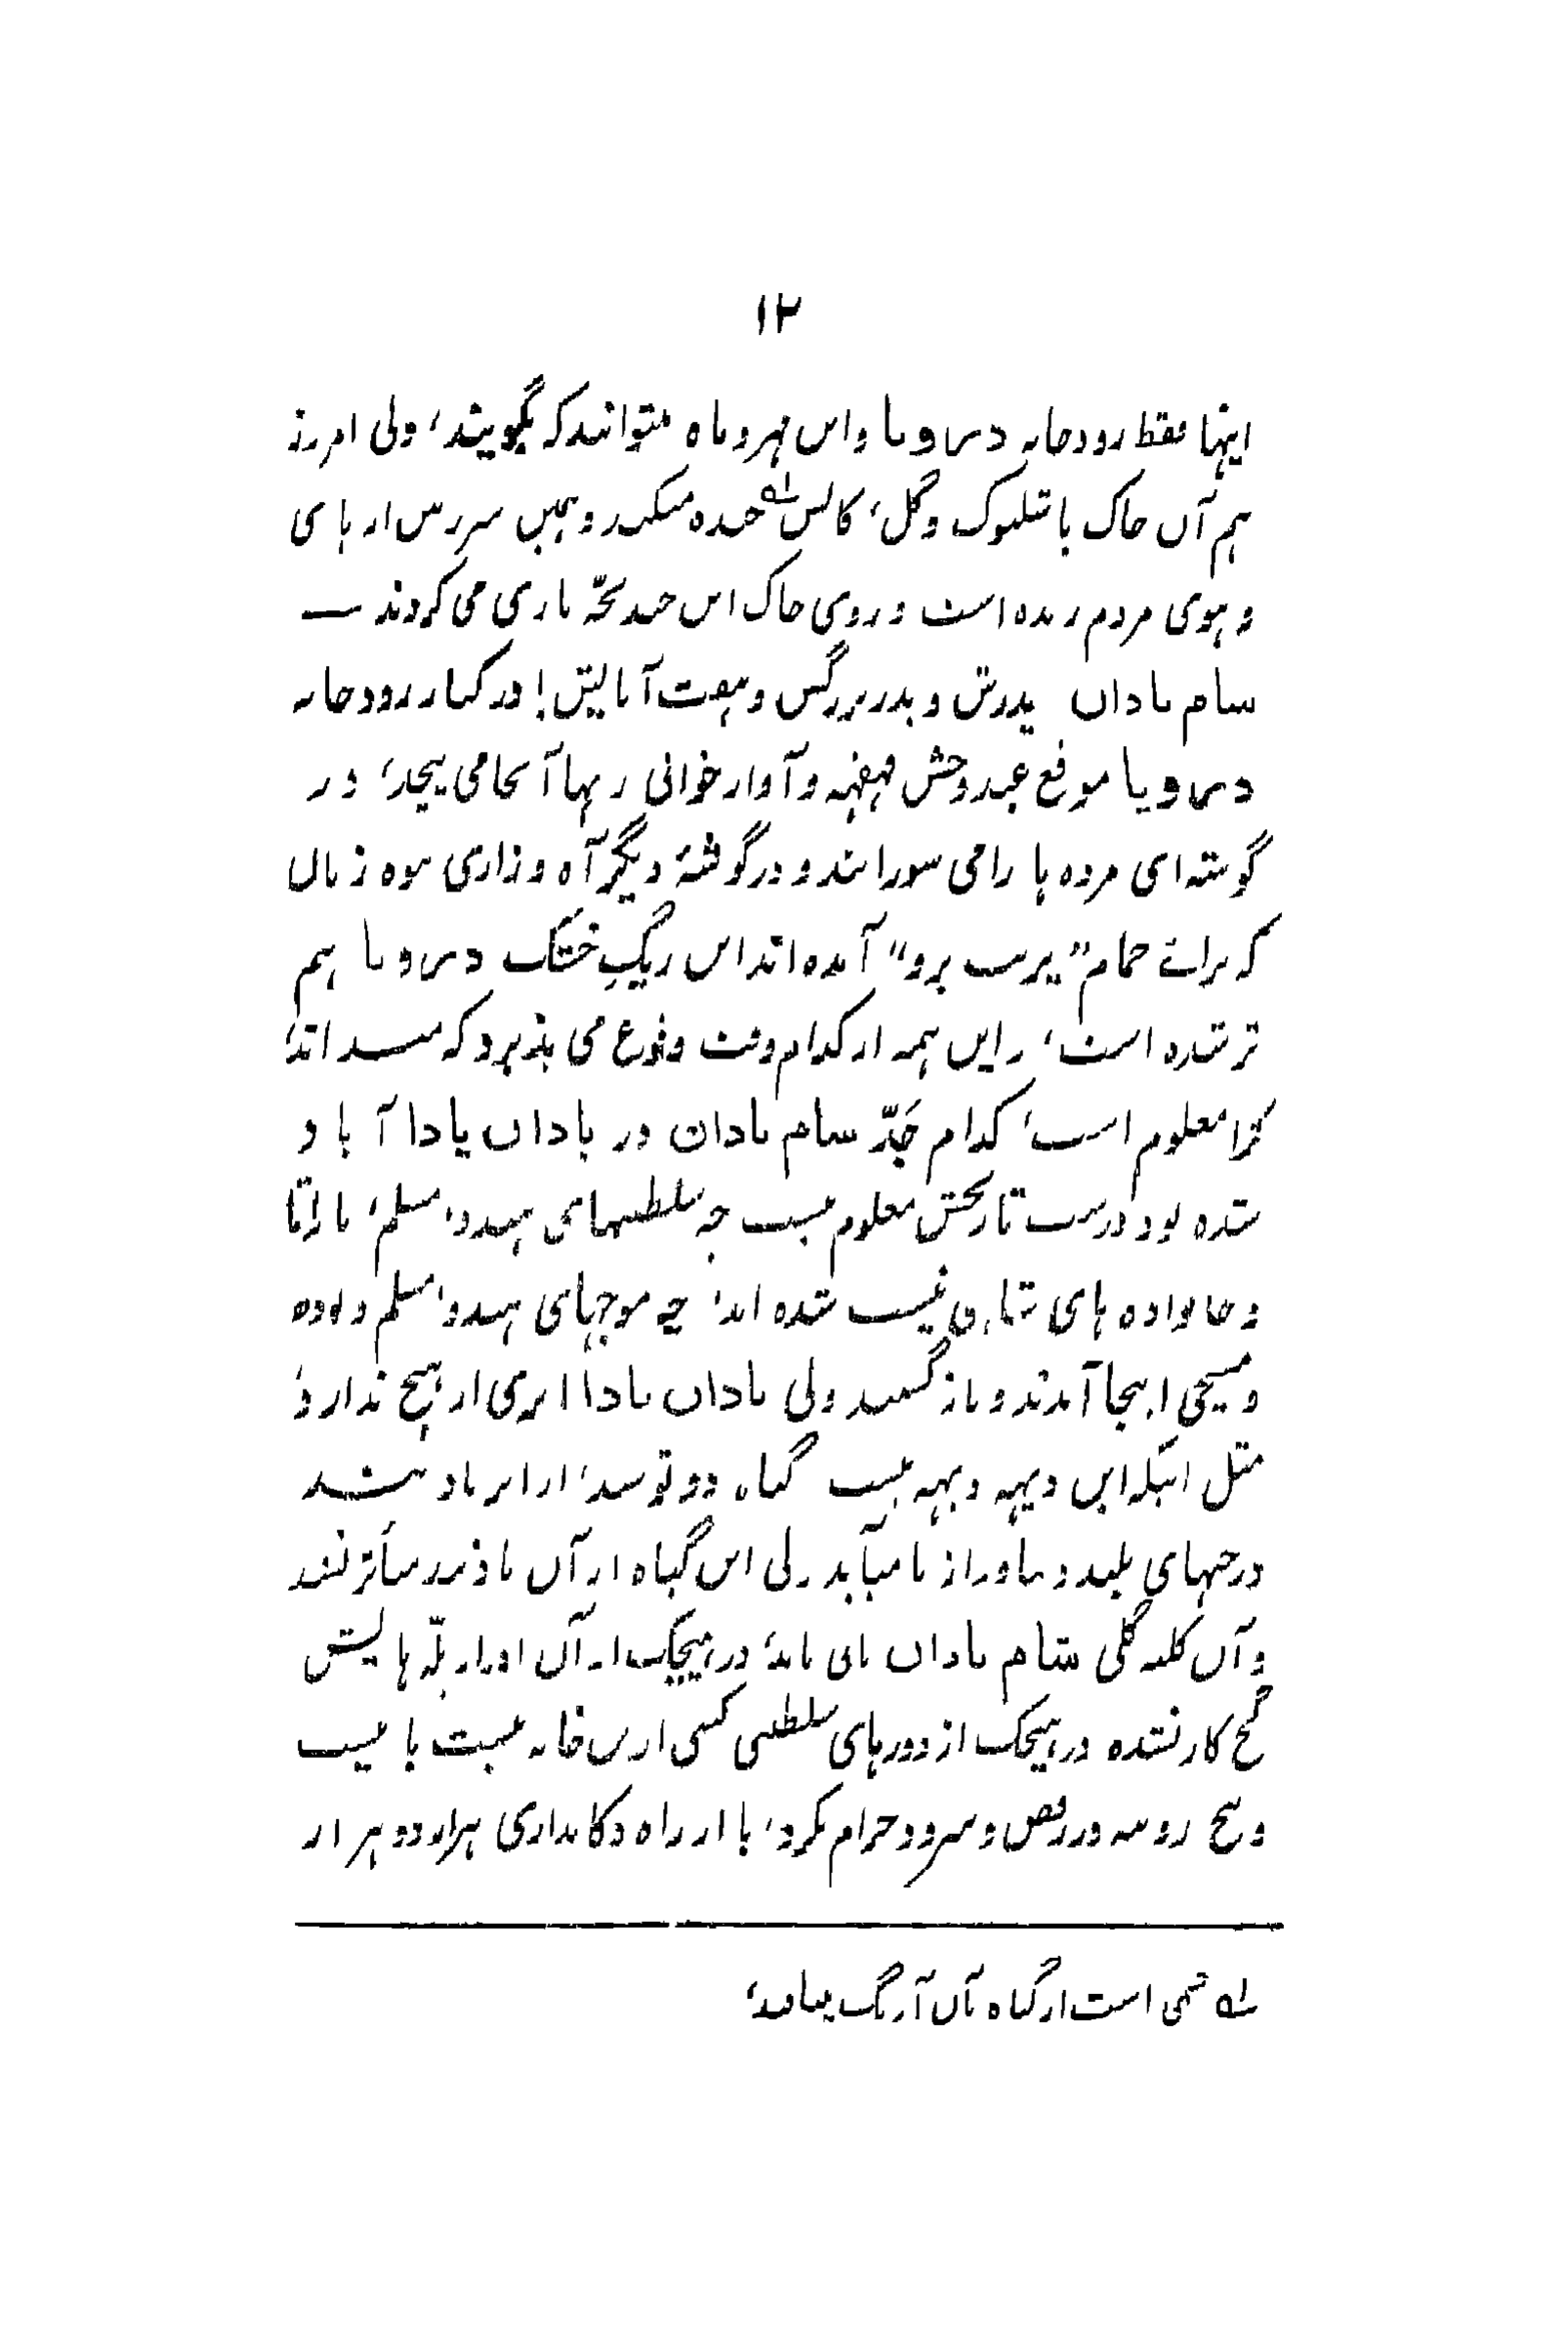 ۱۲
اینها فقط رودخانه دس ویا واین مهر وماه میتوانند که بگویند، ولی امروز
هم آں خاک با شلوک وگل، کالس خنده میکند و زمین سرس از پا ی
و بوی مردم زنده است و روی خاک این چند بچّه بازی می کردند —
سام باداں پدرش و پدر بزرگس و هفت آبایش! در کنار رودخانه
دس ویا موقع عید وجش قهقهه وآواز خوانی زنها آنجا می پیچد، ودر
گوشه ای مرده ها را می سوزانند و در گوشهٔ دیگر آه وزاری بیوه زناں
که برائے حمام آمده اند این ریگِ خشک دس ویا هم
تر شده است، واین همه از کدام وقت وقوع می پذیرد که میداند،
کرا معلوم است، کدام جدّ سام بادان در باداں یا دا آباد
شده بود درست تاریخش معلوم نیست چه سلطنتهای هندو، مسلم، با راجا
وخانواده های شاہی نیست شده اند، چه موجهای هندو، مسلم
ومسیحی اینجا آمدند و باز گشتند ولی باداں بادا اثری از هیچ ندارد،
مثل اینکه این دیهه دیهه نیست گیاه دو توسد، از ابر باد تند
درختهای بلند وتناور از پا میآید ولی این گیاه از آں باد متأثر نشد
وآں کلبه گلی شام باداں باقی ماند، در هیچیک از آں ادوار پلّه هایش
گچ کار نشده در هیچیک از دورهای سلطنتی کسی از این خانه بیست یا بیست
وپنج روپیه در رقص وسرود حرام نکرد، یا از راه دکانداری هزار دو هزار
؎ قسمی است از گیاه بآں آرنگ